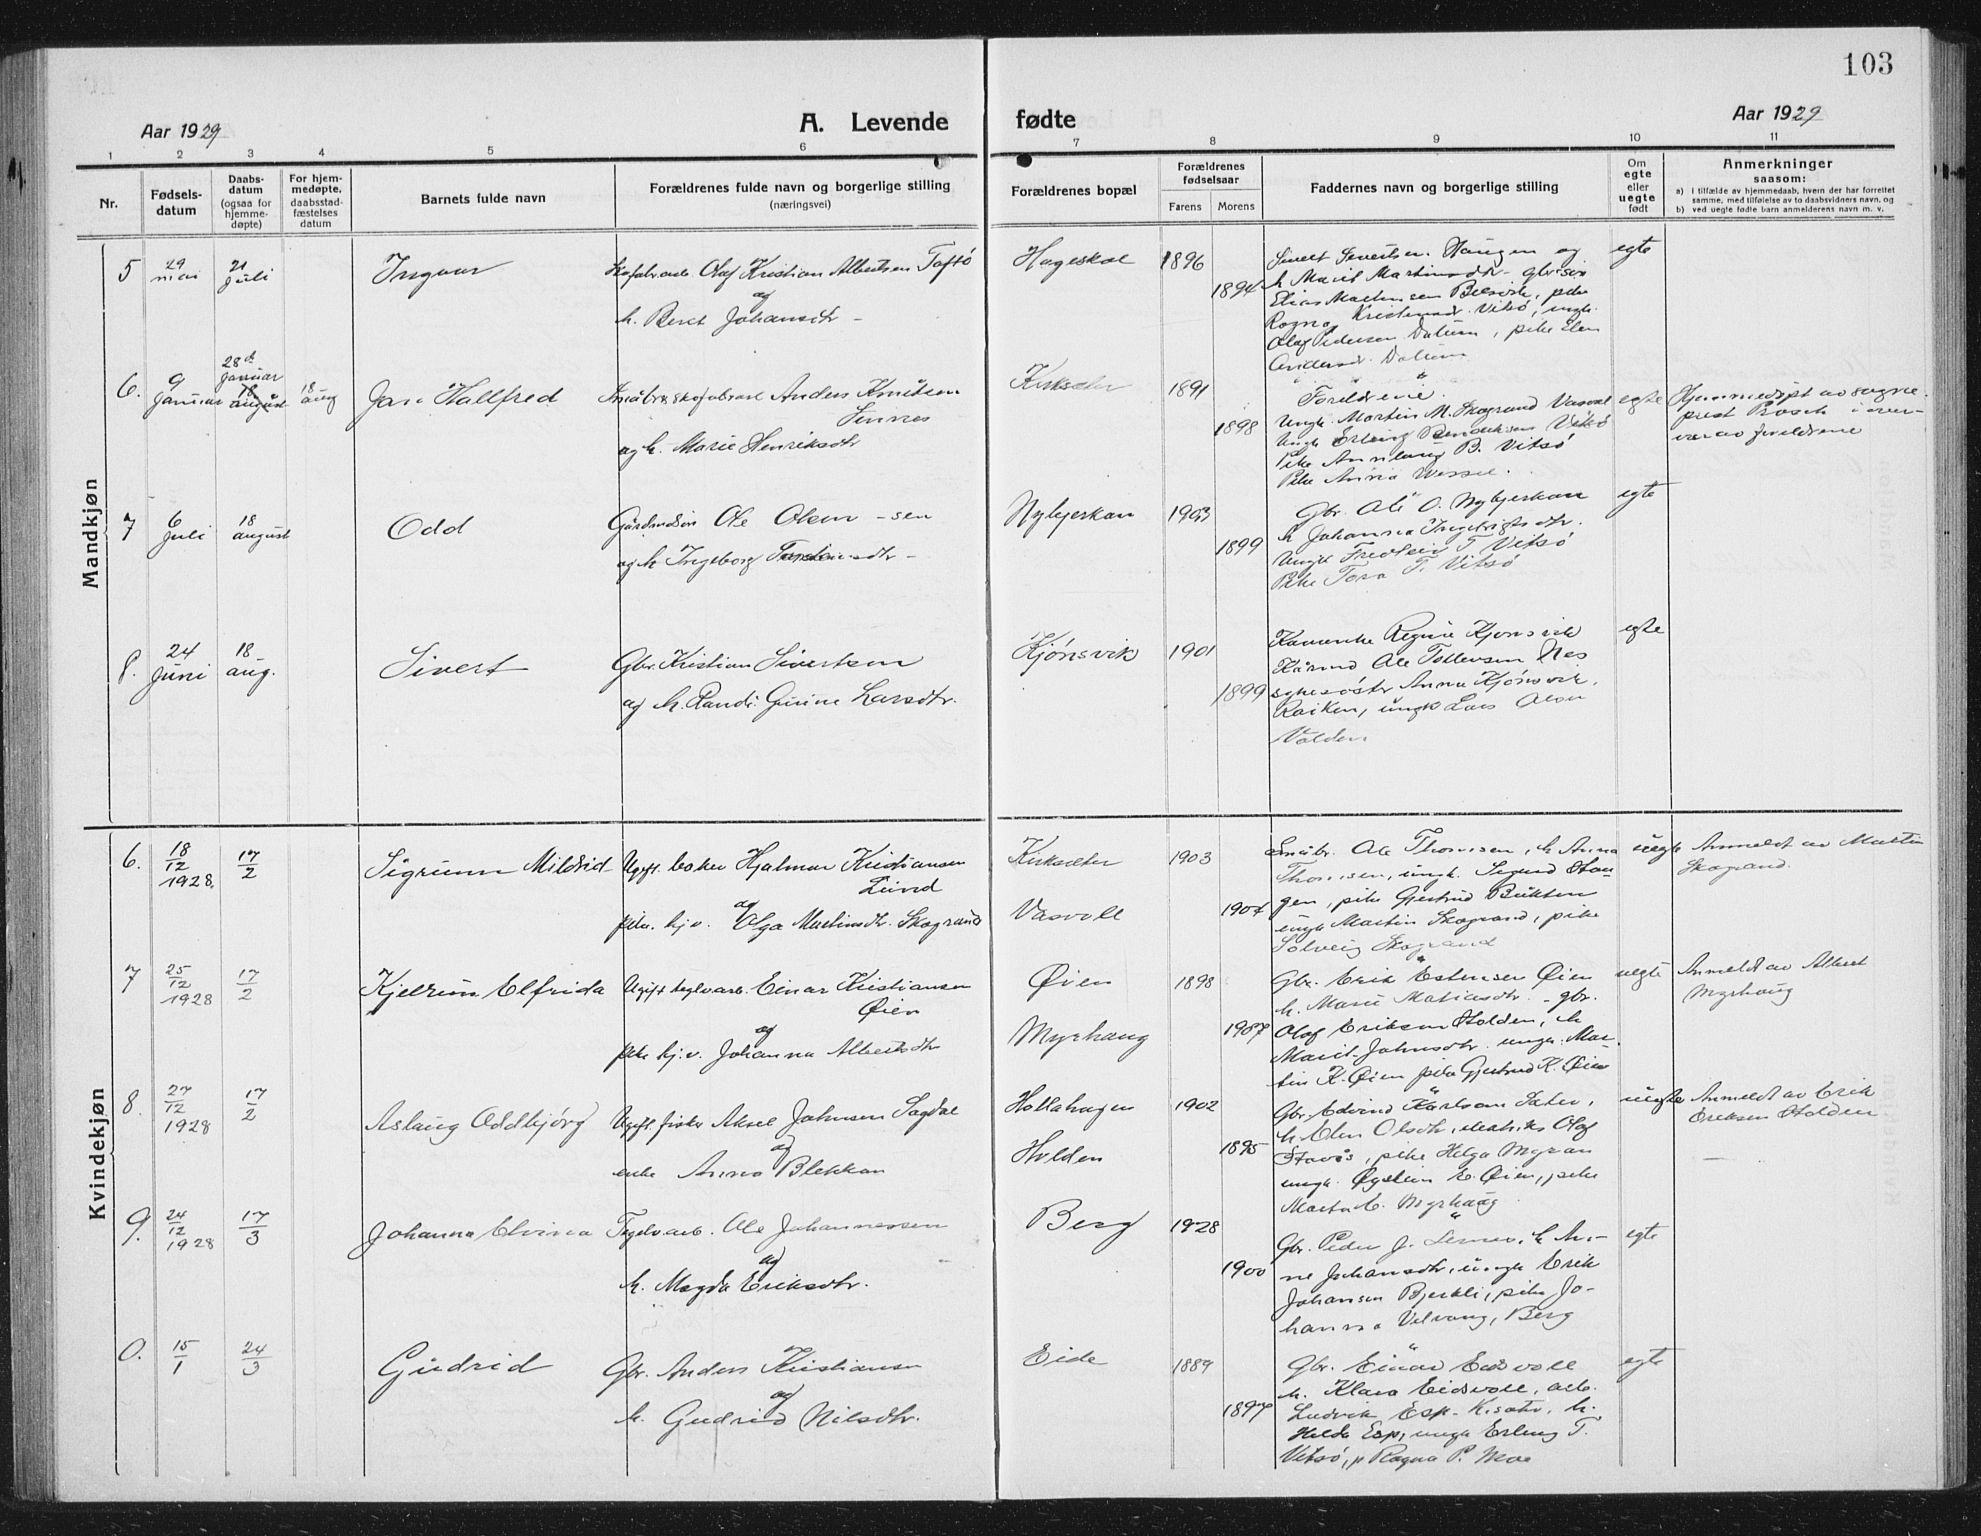 103
Aar 1929
A. Levende
fødte
Aar 1929
1 2 3 4 5 6 7 8 9 10 11
Nr.
Fødsels-
datum
Daabs-
datum
(ogsaa for
hjemme-
døpte)
For hjem-
medøpte,
daabsstad-
fæstelses
datum
Barnets fulde navn
Forældrenes fulde navn og borgerlige stilling
(næringsvei)
Forældrenes bopæl
Forældrenes
fødselsaar
Farens Morens
Faddernes navn og borgerlige stilling
Om
egte
eller
uegte
født
Anmerkninger
saasom:
a) i tilfælde av hjemmedaab, hvem der har forrettet
samme, med tilføielse av to daabsvidners navn, og
b) ved uegte fødte barn anmelderens navn m. v.
Mandkjøn
5 29 mai 21 juli
Ingvar
Olaf Kristian Albertsen Toftø
og
h. Beret Johansdtr
1896
1894
Sivert Sivertsen Haugen og
h. Marit Martinsdtr
Elias Martinsen pike
Ragna Kristensdr. Vitsø, ungk.
Olaf Pedersen Dalum, pike Elen
Andersdr. Dalum
egte
6. 9 januar 28de januar 18 august 18 aug
Jan Hallfred
Anders Knutsen
og h. Marie Henriksdtr
Kirksæter
1891
1898
Foreldrene.
Ungk. Martin M. Skogrand Vasvoll
Ungk Erling Bendiksen Vitsø
Pike Annlaug B. Vitsø
Pike Anna Wessel.
egte
Hjemmedøpt av sogne-
prest Bosch i over-
vær av foreldrene
7 6 juli 18 august
Odd
Ole Olsen -sen
og h Ingeborg
1903
1899
Gbr. Ole O.
h Johanna Ingebrigtsdtr.
Ungk T Vitsø
Pike Tora T. Vitsø
egte
8. 24 juni 18 aug.
Sivert
Gbr. Kristian Sivertsen
og h. Randi Gurine Larsdtr.
Kjønsvik
1901
1899
Regine Kjønsvik
Ole Tollevsen Nes
Anna Kjønsvik,
ungk Lars Olsen
Volden
egte
Kvindekjøn
6. 18/12 1928. 17/2
Sigrunn Mildrid
Ugift. baker Hjalmar Kristiansen
Lund
og
pike. hj. v. Olga Martinsdtr. Skogrand
Kirksæter
Vasvoll
1903
1904
Småbr. Ole Thomsen, h Anna
Thomsen, ungk. Sigurd Hau-
gen, pike Gjertrud Bukten
ungk Martin Skogrand, pike
Solveig Skogrand
uegte
Anmeldt av Martin
Skogrand.
7 25/12 1928 17/2
Kjellrun Elfrida
Ugift teglv.arb. Einar Kristiansen
Øien
og
pike hj. v. Johanna Albertsdtr
Øien
Myrhaug
1898
1907
Gbr. Erik Estensen Øien
h. Marie Matiasdtr. - gbr.
Olaf Eriksen Holden, h
Marit Johnsdtr. ungk. Mar-
tin K. Øien pike Gjertrud K. Øien
uegte
Anmeldt av Albert
Myrhaug
8. 27/12 1928 17/2
Aslaug Oddbjørg
Ugift. fisker Aksel Johnsen Sagdal
og
enke Anna Blekkan
Hollahagen
Holden
1902
1895
Gbr. Edvind Karlsen Sæter,
h. Elen Olsdtr, Olaf
pike Helga Myran
ungk. Øystein E. Øien, pike
Marta E. Myrhaug
uegte
Anmeldt av Erik
Eriksen Holden
9. 24/12 1928 17/3
Johanna Elvina
Teglv.arb. Ole Johannessen
og
h. Magda Eriksdtr.
Berg
1928
1900
Gbr. Peder J. h An-
ne Johansdtr, ungk Erik
Johansen Bjerkli, pike Jo-
hanna Vilvang, Berg
egte
0. 15/1 24/3
Gudrid
Gbr. Anders Kristiansen
og
h. Gudrid Nilsdtr.
Eide
1889
1897
Gbr. Einar Eidsvoll
h. Klara Eidsvoll, arb.
Ludvik Esp- h.
Helda Esp, ungk Erling T.
Vitsø, p Ragna P. Moe
egte